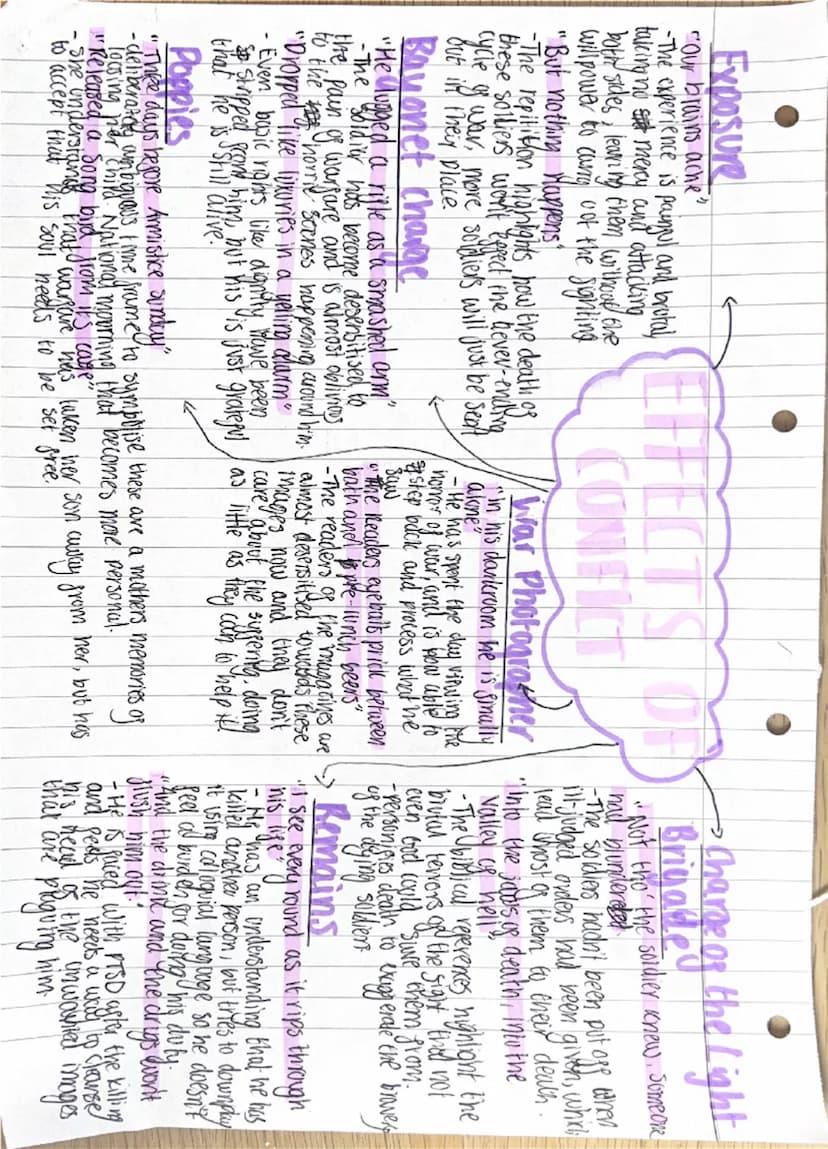 EFFECTS OF
CONFLICT
Exposure
"Our brains ache"
- The experience is painful and brutal
taking no mercy and attacking
both sides, leaving them without the
will power to carry out the fighting
"But nothing happens"
- The repitition highlights how the death of
these soldiers won't effect the never-ending
cycle of war, more soldiers will just be sent
out in their place.
Bayonet Charge
"He lugged a rifle as a smashed arm"
- The soldier has become desensitised to
the pain of warfare and is almost oblivious
to the horrific scenes happening around him.
"Dropped like luxuries in a yelling alarm"
- Even basic rights like dignity have been
stripped from him, but his is just grateful
that he is still alive.
Poppies
"Three days before Armistice Sunday"
- deliberately ambiguous time frame to symbolise these are a mothers memories of
loosing her child. National mourning that becomes more personal.
"Released a song bird from its cage"
- She understands that warfare has taken her son away from her, but has
to accept that his soul needs to be set free.
War Photographer
"in his darkroom he is finally
alone"
- He has spent the day viewing the
horror of war, and is now able to
step back and process what he
saw
"the readers eyeballs prick between
bath and pre-lunch beers"
- The readers of the magazines are
almost desensitised towards these
images now and they don't
care about the suffering, doing
as little as they can to help it
Charge of the Light
Brigade
"Not tho' the soldier knew, someone
had blundered"
- The soldiers hadn't been put off when
ill-judged orders had been given, which
lead most of them to their death.
"Into the jaws of death, into the
valley of hell"
- The biblical references highlight the
brutal terrors of the fight that not
even god could save them from.
- personifies death to exaggerate the bravery
of the dying soldiers
Remains
"I see every round as it rips through
his life"
- He has an understanding that he has
killed another person, but tries to downplay
it using colloquial language so he doesn't
feel a burden for doing his duty.
"And the drink and the drugs won't
flush him out"
- He is faced with PTSD after the killing
and feels he needs a way to cleanse
his head of the unwanted images
that are plaguing him.